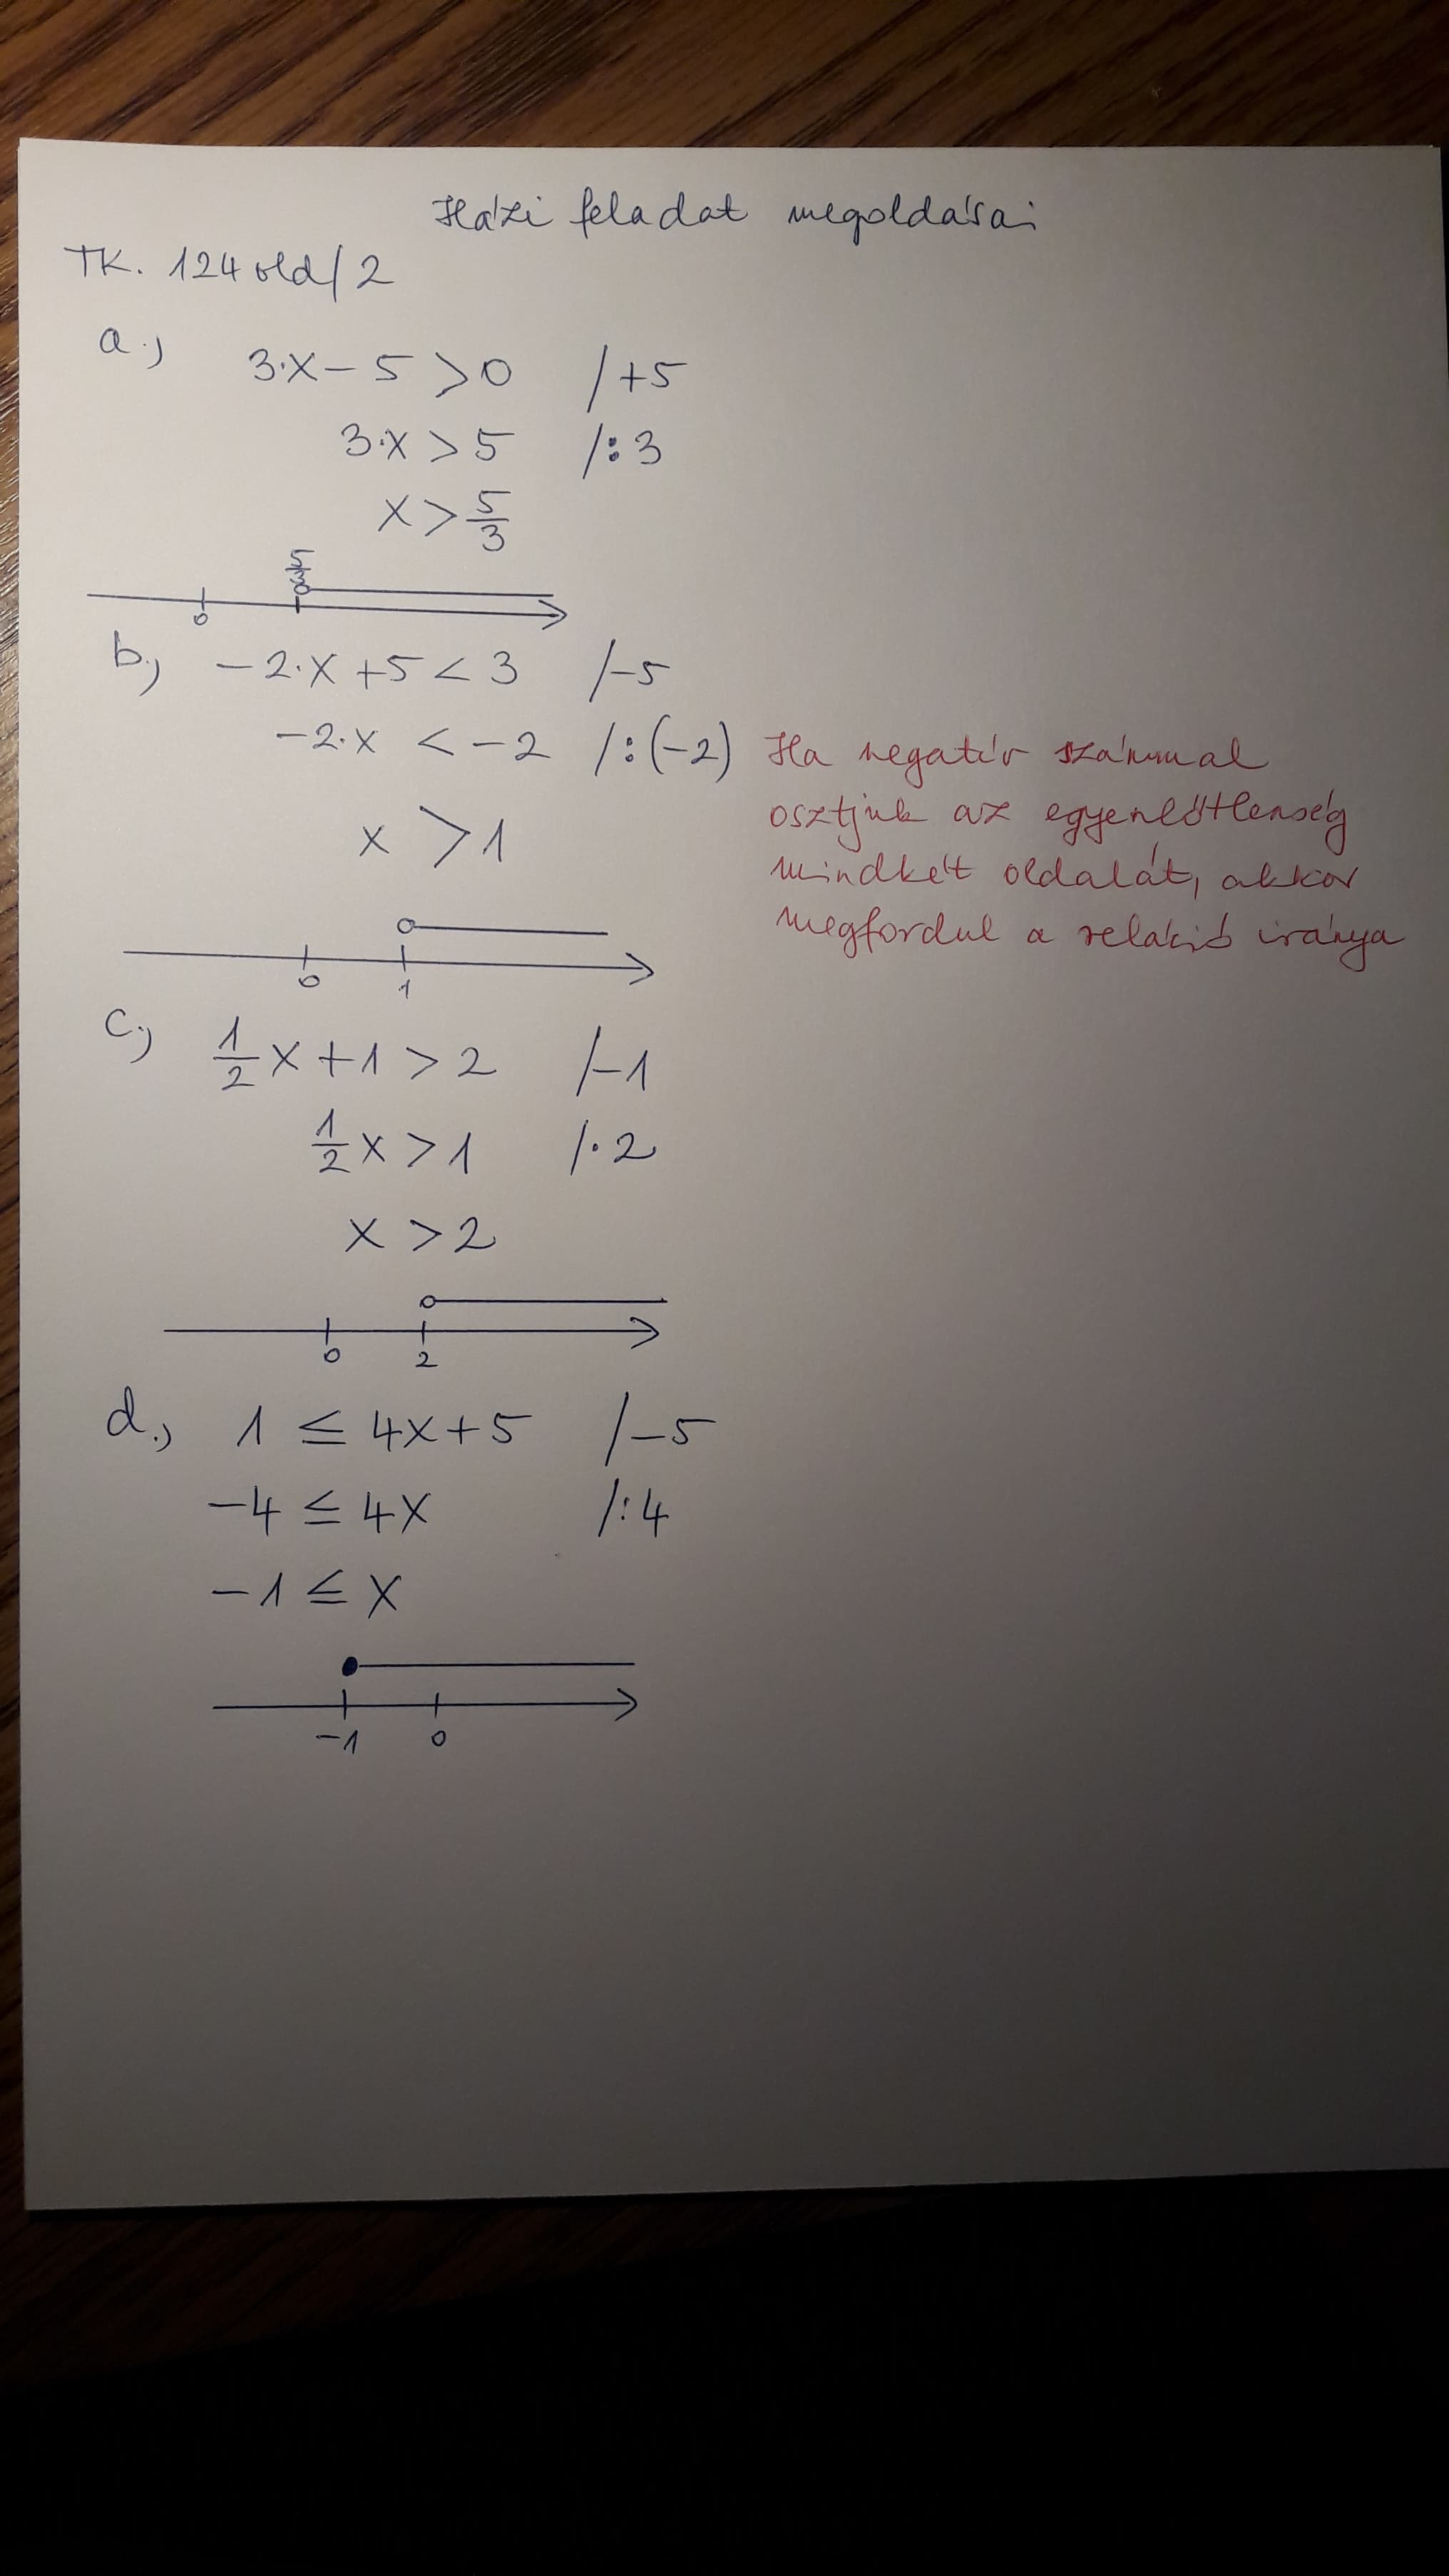 Házi feladat megoldásai
TK. 124 old/2
a.) 3·x - 5 > 0 /+5
3·x > 5 /:3
x > 5/3
5/3
0
b.) -2·x + 5 < 3 /-5
-2·x < -2 /:(-2) Ha negatív számmal
osztjuk az egyenlőtlenség
mindkét oldalát, akkor
x > 1
megfordul a reláció iránya
0 1
c.) 1/2 x + 1 > 2 /-1
1/2 x > 1 /·2
x > 2
0 2
d.) 1 ≤ 4x + 5 /-5
-4 ≤ 4x /:4
-1 ≤ x
-1 0